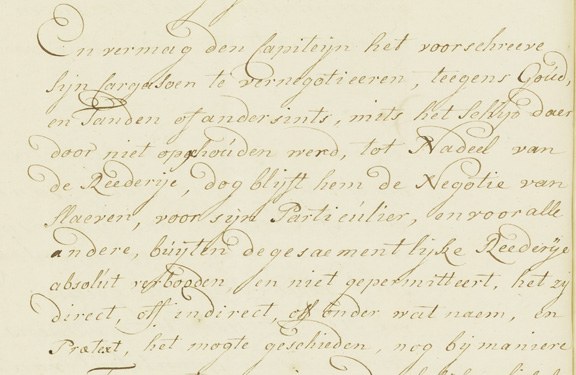 En vermag den Capiteijn het voorschreeve
sijn Cargasoen te vernegotieeren, teegens Goud,
en Tanden of andersints, mits het Schip daer
door niet opgehouden werd, tot Nadeel van
de Reederije, dog blijft hem de Negotie van
Slaeven, voor sijn Particulier, en voor alle
andere, buijten de gesaementlijke Reederije
absolut verbooden, en niet gepermitteert, het zij
direct, off indirect, off onder wat naem, en
Pretext, het mogte geschieden, nog bij maniere